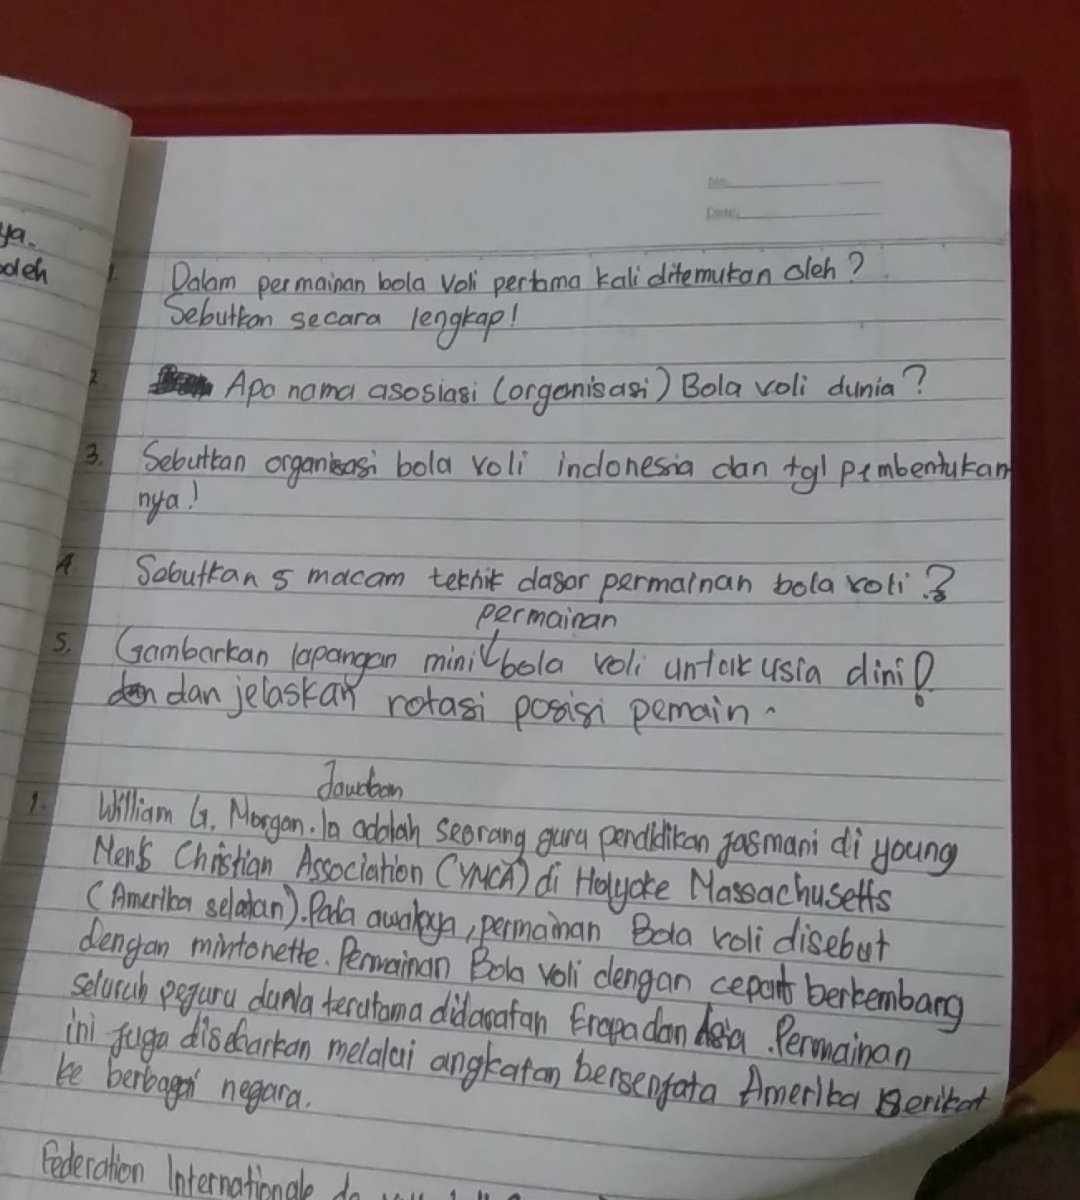 ya.
oleh
No.
Date.
1. Dalam permainan bola voli pertama kali ditemukan oleh?
Sebutkan secara lengkap!
2. Apa nama asosiasi (organisasi) Bola voli dunia?
3. Sebutkan organisasi bola voli indonesia dan tgl pembentukan
nya!
4 Sebutkan 5 macam teknik dasar permainan bola voli?
permainan
5. Gambarkan lapangan mini bola voli untuk usia dini!
dan jelaskan rotasi posisi pemain.
Jawaban
1. William G. Morgan. Ia adalah seorang guru pendidikan jasmani di young
Men's Christian Association (YMCA) di Holyoke Massachusetts
(Amerika selatan). Pada awalnya, permainan Bola voli disebut
dengan mintonette. Permainan Bola voli dengan cepat berkembang
seluruh penjuru dunia terutama didaratan Eropa dan Asia. Permainan
ini juga disebarkan melalui angkatan bersenjata Amerika Serikat
ke berbagai negara.
Federation Internationale de